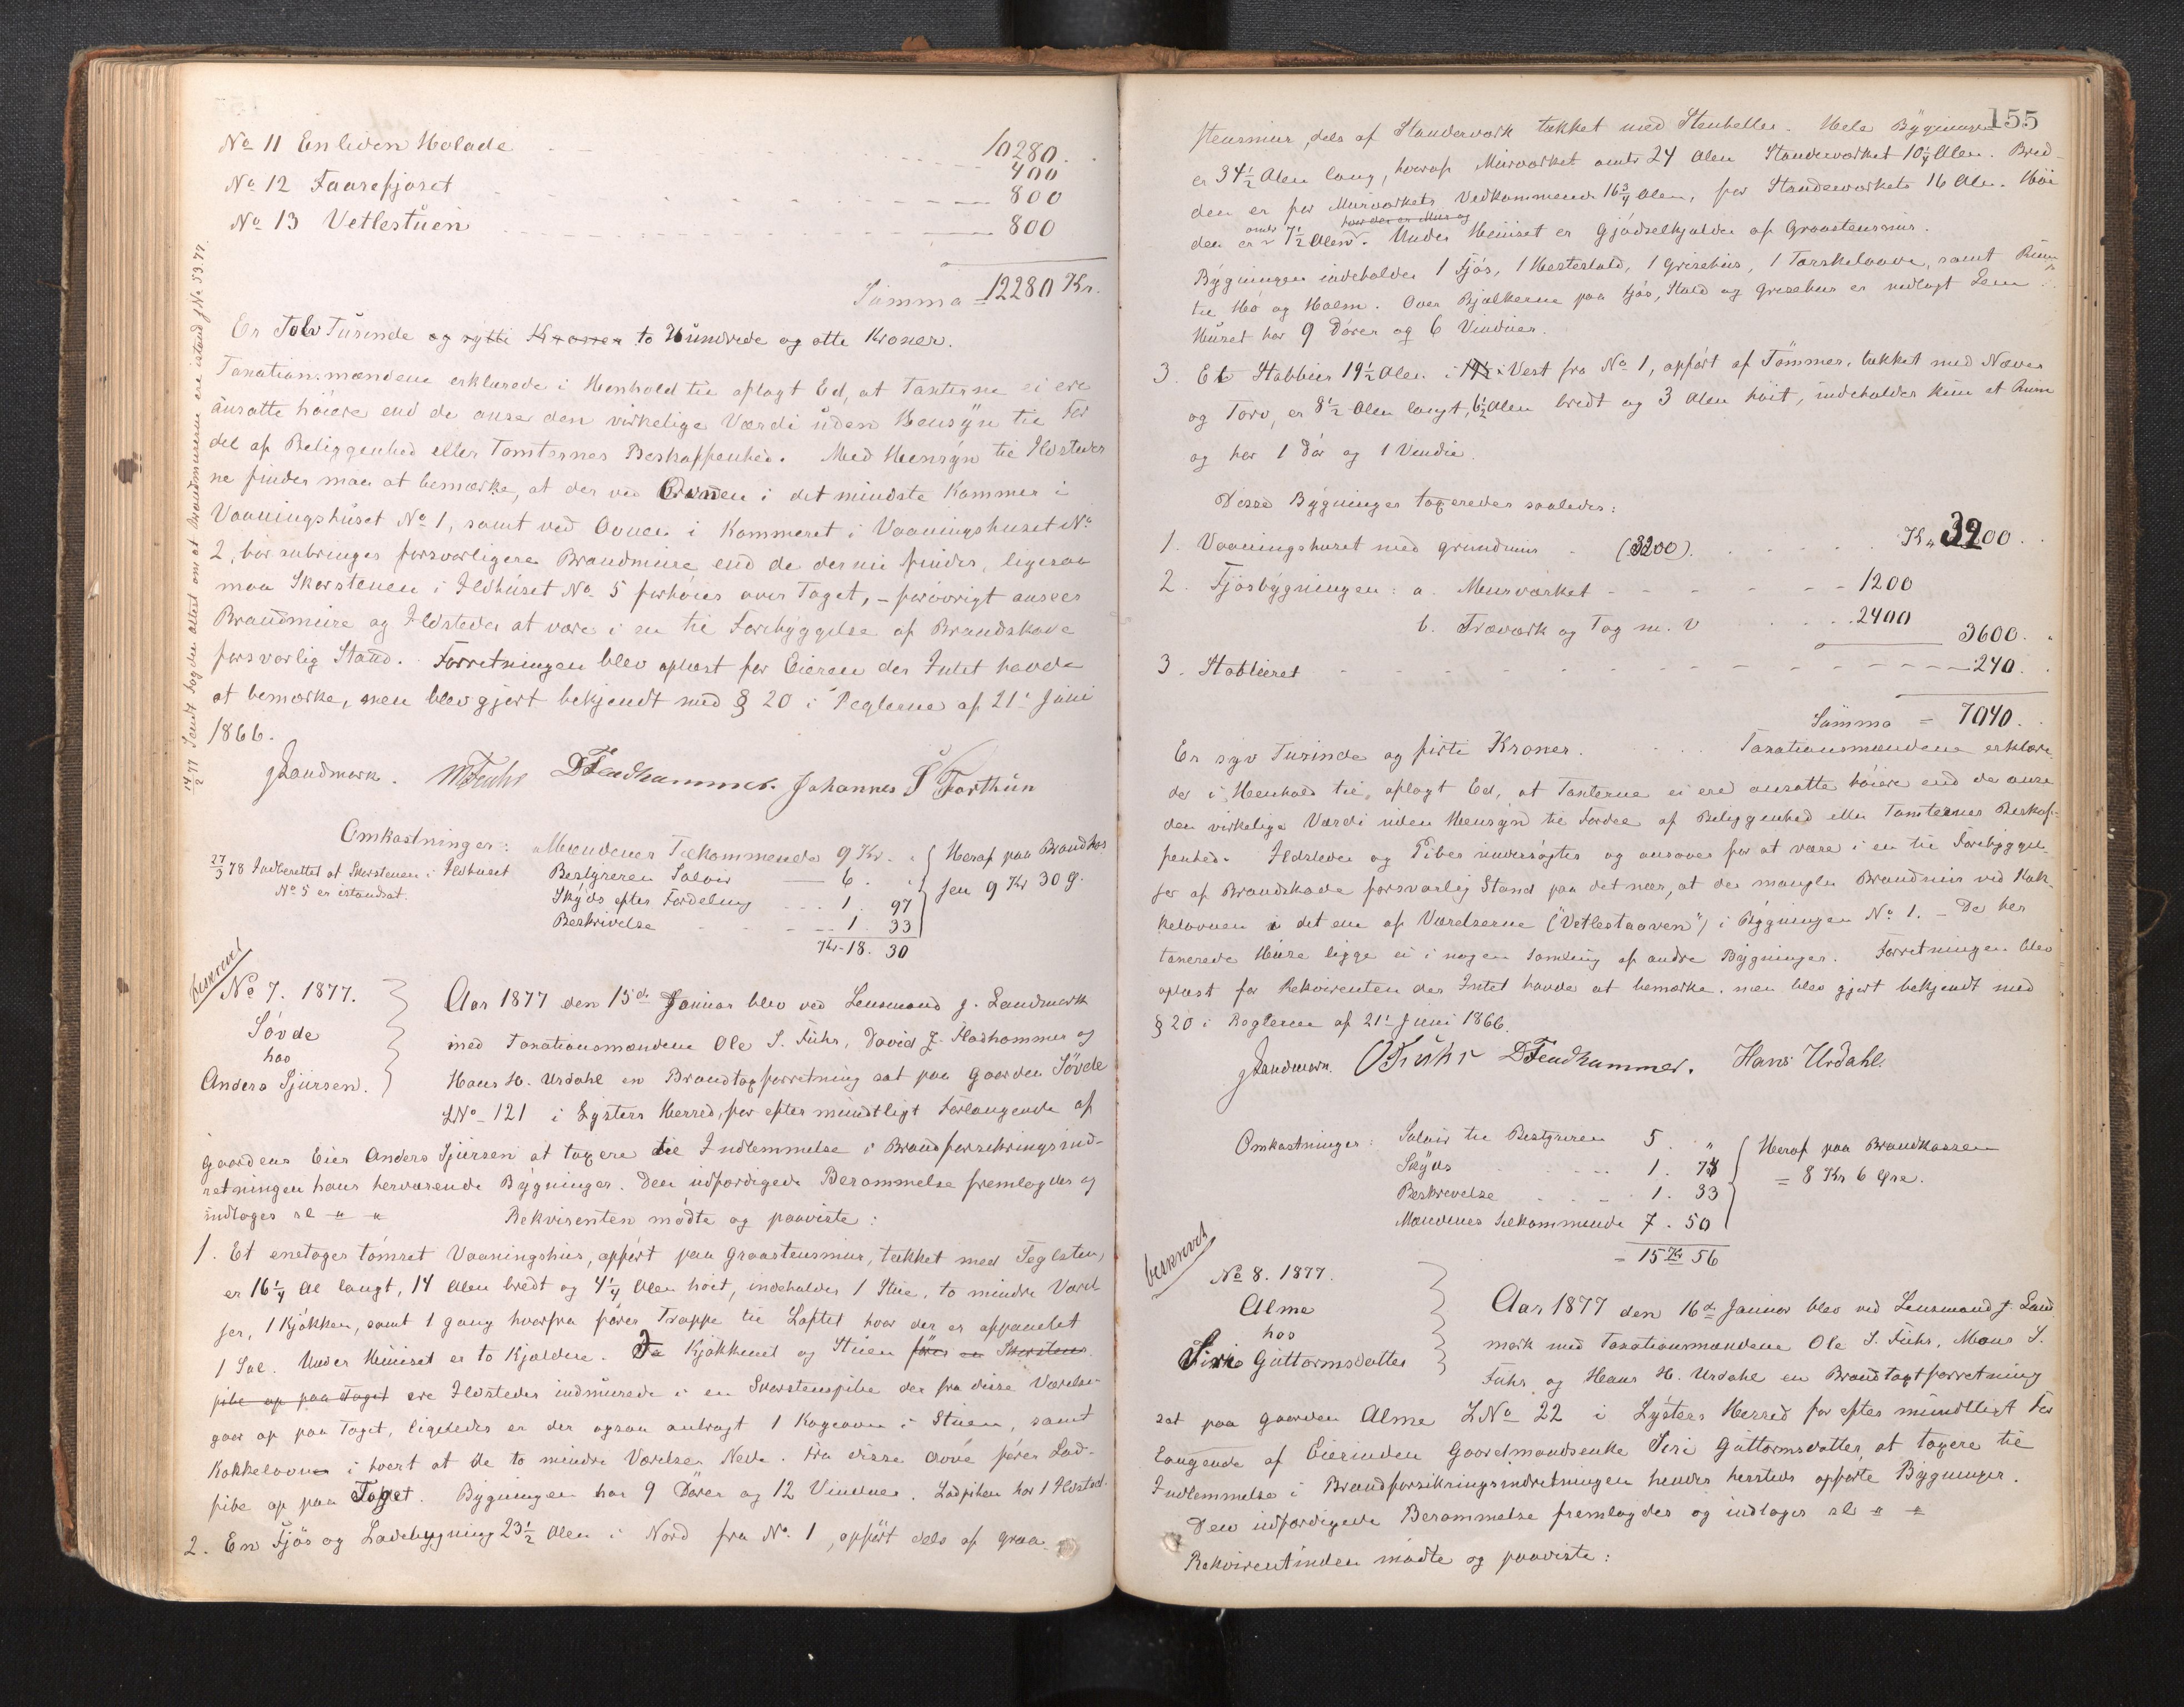 10280.
No 11 En liden Hølade 400
No 12 Faarefjøset 800
No 13 Vetlestuen 800
Summa = 12280 Kr.
Er Tolv Tusinde og sytti Kroner to Hundrede og otte Kroner.
Taxationsmændene erklærede i Henhold til aflagt Ed, at Taxterne ei ere
ansatte høiere end de anse den virkelige Værdi uden Hensyn til For
del af Beliggenhed eller Tomternes Beskaffenhed. Med Hensyn til Ildsteder
ne finder man at bemærke, at der ved Ovnen i det mindste Kammer i
Vaaningshuset No 1, samt ved Ovnen i Kammeret i Vaaningshuset No
2, bør anbringes forsvarligere Brandmure end de der nu findes, ligesaa
maa Skorstenen i Ildhuset No 5 forhøies over Taget, - forøvrigt ansees
Brandmure og Ildsteder at være i en til Forebyggelse af Brandskade
forsvarlig Stand. Forretningen blev oplæst for Eieren der Intet havde
at bemærke, men blev gjort bekjendt med § 20 i Reglerne af 21' Juni
1866.
14/2 77 Sendt Fogden attest om at Brandmurene ere istand J No 53.77.
J Landmark. M Fuhr D Fladhammer. Johannes S Forthun
Omkostninger: Mændenes Tilkommende 9 Kr. " Heraf paa Brandkas
Bestyreren Salair 6. " sen 9 Kr 30 Ø.
Skyds efter Fordeling 1. 97
Beskrivelse 1 33
Kr. 18. 30
27/3 78 Indberettet at Skorstenen i Ildhuset
No 5 er istandsat.
beskrevet
No 7. 1877.
Søvde
hos
Anders Sjursen.
Aar 1877 den 15de Januar blev ved Lensmand J. Landmark
med Taxationsmændene Ole S. Fuhr, David J. Fladhammer og
Hans H. Urdahl en Brandtaxtforretning sat paa Gaarden Søvde
LNo 121 i Lysters Herred, for efter mundtligt Forlangende af
Gaardens Eier Anders Sjursen at taxere til Indlemmelse i Brandforsikringsind-
retningen hans herværende Bygninger. Den udfærdigede Berammelse fremlagdes og
indtages sl " "
Rekvirenten mødte og paaviste:
1. Et enetages tømret Vaaningshus, opført paa Graastensmur, tækket med Teglsten,
er 16 1/4 Al langt, 14 Alen bredt og 4 1/4 Alen høit, indeholder 1 Stue, to mindre Værel
ser, 1 Kjøkken, samt 1 Gang hvorfra fører Trappe til Loftet hvor der er afpanelet
1 Sal. Under Huset er to Kjældere. Fra Kjøkkenet og Stuen fører en Skorstens
pibe op paa Taget ere Ildsteder indmurede i en Skorstenspibe der fra disse Værelser
gaar op paa Taget, ligeledes er der ogsaa anbragt 1 Kogeovn i Stuen, samt
Kakkelovne i hvert at de to mindre Værelser Nede. Fra disse Ovne fører Lad-
pibe op paa Taget. Bygningen har 9 Dører og 12 Vinduer. Ladpiben har 1 Ildsted.
2. En Fjøs og Ladebygning 23 1/2 Alen i Nord fra No 1, opført dels af Graa-
155
stensmur, dels af Standerværk tækket med Stenheller. Hele Bygningen
er 34 1/2 Alen lang, hvoraf Murværket omtr 24 Alen Standerværket 10 1/4 Alen. Bred-
den er for Murværkets Vedkommende 16 3/4 Alen, for Standerværkets 16 Alen. Høi
hvor der er Mur og
den er omtr 7 1/2 Alen. Under Huset er Gjødselkjælder af Graastensmur.
Bygningen indeholder 1 Fjøs, 1 Hestestald, 1 Grisehus, 1 Tærskelaave, samt Rum
til Hø og Halm. Over Bjælkerne paa Fjøs, Stald og Grisehus er nedlagt Lem
Huset har 9 Dører og 6 Vinduer.
3. Et Stabbur 19 1/2 Alen i Vest fra No 1, opført af Tømmer, tækket med Næver
og Torv, er 8 1/2 Alen langt, 6 1/2 Alen bredt og 3 Alen høit, indeholder kun et Rum
og har 1 Dør og 1 Vindue.
Disse Bygninger taxeredes saaledes:
1. Vaaningshuset med Grundmur (3200) Kr. 3200
2. Fjøsbygningen: a. Murværket 1200
b. Træværk og Tag m. v 2400
3600. "
3. Stabburet 240.
Summa = 7040.
Er syv Tusinde og firti Kroner. Taxationsmændene erklære
de i Henhold til aflagt Ed, at Taxterne ei ere ansatte høiere end de anse
den virkelige Værdi uden Hensyn til Fordel af Beliggenhed eller Tomternes Beskaf-
fenhed. Ildsteder og Piber undersøgtes og ansaaes for at være i en til Forebyggel-
se af Brandskade forsvarlig Stand paa det nær, at der mangler Brandmur ved Kak-
kelovnen i det ene af Værelserne ("Vetlestaaven") i Bygningen No 1. - De her
taxerede Huse ligge ei i nogen Samling af andre Bygninger. Forretningen blev
oplæst for Rekvirenten der Intet havde at bemærke, men blev gjort bekjendt med
§ 20 i Reglerne af 21' Juni 1866.
J Landmark. O Fuhr D Fladhammer. Hans Urdahl.
Omkostninger: Salair til Bestyreren 5. " Heraf paa Brandkassen
Skyds 1. 73 = 8 Kr 6 Øre.
Beskrivelse 1. 33
Mændenes Tilkommende 7. 50
= 15 Kr 56
beskrevet
No 8. 1877.
Alme
hos
Siri Guttormsdatter
Aar 1877 den 16de Januar blev ved Lensmand J. Land
mark med Taxationsmændene Ole S. Fuhr, Mons S.
Fuhr og Hans H. Urdahl en Brandtaxtforretning
sat paa Gaarden Alme LNo 22 i Lysters Herred for efter mundtligt For
langende af Eierinden Gaardmandsenke Siri Guttormsdatter at taxere til
Indlemmelse i Brandforsikringsindretningen hendes hersteds opførte Bygninger.
Den udfærdigede Berammelse fremlagdes og indtages sl " "
Rekvirentinden mødte og paaviste: